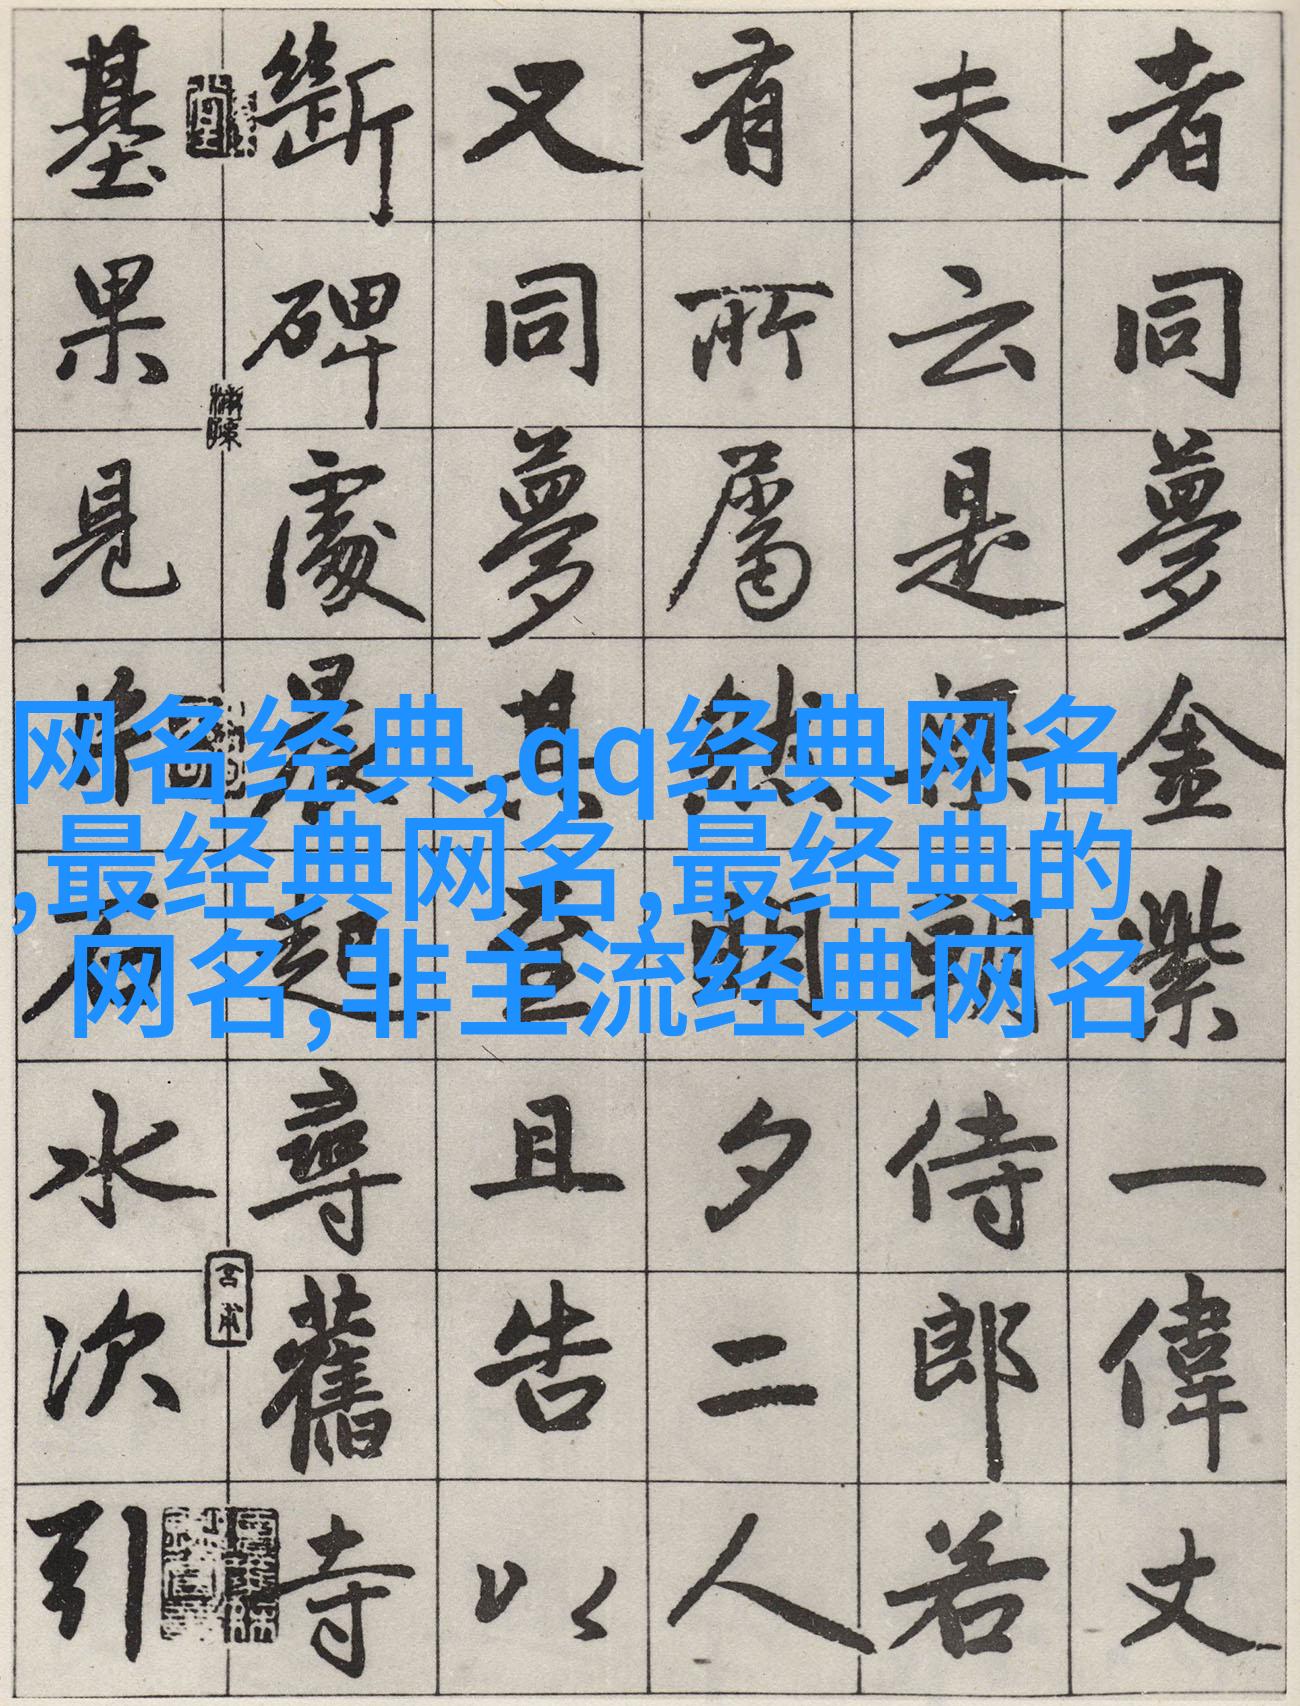 者同夢金紫一偉丈
夫云是朝侍郎若
有所屬然夕二人
又同夢其至且告以
斷碑處晨起尋舊寺
基果見水次引
网名经典,qq经典网名
,最经典网名,最经典的
网名,非主流经典网名